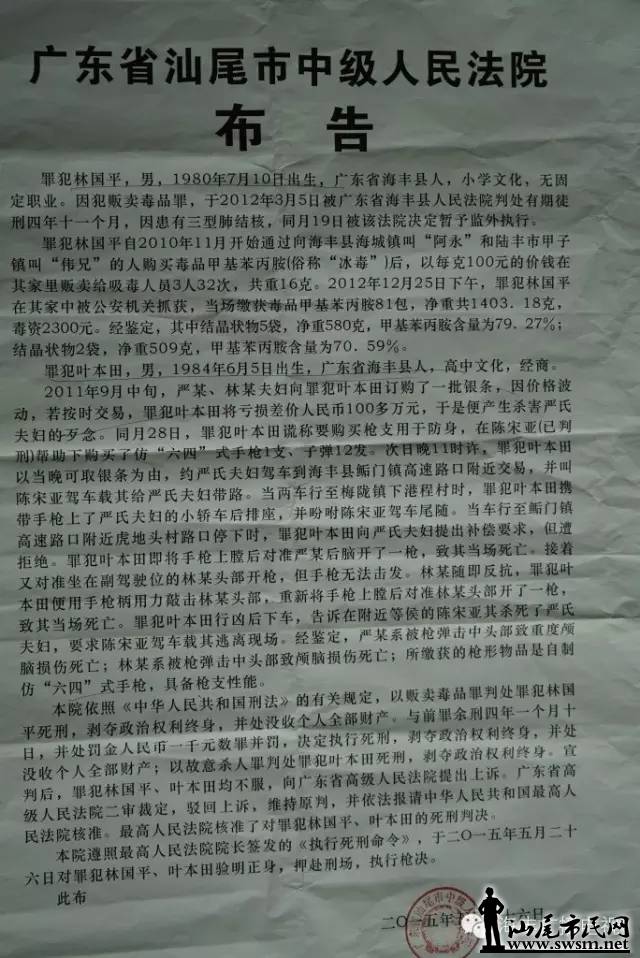 广东省汕尾市中级人民法院
布 告
罪犯林国平，男，1980年7月10日出生，广东省海丰县人，小学文化，无固
定职业。因犯贩卖毒品罪，于2012年3月5日被广东省海丰县人民法院判处有期徒
刑四年十一个月，因患有三型肺结核，同月19日被该法院决定暂予监外执行。
罪犯林国平自2010年11月开始通过向海丰县海城镇叫“阿永”和陆丰市甲子
镇叫“伟兄”的人购买毒品甲基苯丙胺(俗称“冰毒”)后，以每克100元的价钱在
其家里贩卖给吸毒人员3人32次，共重16克。2012年12月25日下午，罪犯林国平
在其家中被公安机关抓获，当场缴获毒品甲基苯丙胺81包，净重共1403．18克，
毒资2300元。经鉴定，其中结晶状物5袋，净重580克，甲基苯丙胺含量为79．27%；
结晶状物2袋，净重509克，甲基苯丙胺含量为70．59%。
罪犯叶本田，男，1984年6月5日出生，广东省海丰县人，高中文化，经商。
2011年9月中旬，严某、林某夫妇向罪犯叶本田订购了一批银条，因价格波
动，若按时交易，罪犯叶本田将亏损差价人民币100多万元，于是便产生杀害严氏
夫妇的歹念。同月28日，罪犯叶本田谎称要购买枪支用于防身，在陈宋亚(已判
刑)帮助下购买了仿“六四”式手枪1支、子弹12发。次日晚11时许，罪犯叶本田
以当晚可取银条为由，约严氏夫妇驾车到海丰县鲘门镇高速路口附近交易，并叫
陈宋亚驾车载其给严氏夫妇带路。当两车行至梅陇镇下港程村时，罪犯叶本田携
带手枪上了严氏夫妇的小轿车后排座，并吩咐陈宋亚驾车尾随。当车行至鲘门镇
高速路口附近虎地头村路口停下时，罪犯叶本田向严氏夫妇提出补偿要求，但遭
拒绝。罪犯叶本田即将手枪上膛后对准严某后脑开了一枪，致其当场死亡。接着
又对准坐在副驾驶位的林某头部开枪，但手枪无法击发。林某随即反抗，罪犯叶
本田便用手枪柄用力敲击林某头部，重新将手枪上膛后对准林某头部开了一枪，
致其当场死亡。罪犯叶本田行凶后下车，告诉在附近等侯的陈宋亚其杀死了严氏
夫妇，要求陈宋亚驾车载其逃离现场。经鉴定，严某系被枪弹击中头部致重度颅
脑损伤死亡；林某系被枪弹击中头部致颅脑损伤死亡；所缴获的枪形物品是自制
仿“六四”式手枪，具备枪支性能。
本院依照《中华人民共和国刑法》的有关规定，以贩卖毒品罪判处罪犯林国
平死刑，剥夺政治权利终身，并处没收个人全部财产。与前罪余刑四年一个月十
日，并处罚金人民币一千元数罪并罚，决定执行死刑，剥夺政治权利终身，并处
没收个人全部财产；以故意杀人罪判处罪犯叶本田死刑，剥夺政治权利终身。宣
判后，罪犯林国平、叶本田均不服，向广东省高级人民法院提出上诉。广东省高
级人民法院二审裁定，驳回上诉，维持原判，并依法报请中华人民共和国最高人
民法院核准。最高人民法院核准了对罪犯林国平、叶本田的死刑判决。
本院遵照最高人民法院院长签发的《执行死刑命令》，于二〇一五年五月二十
六日对罪犯林国平、叶本田验明正身，押赴刑场，执行枪决。
此布
二〇一五年 十六日
汕尾市民网
www.swsm.net